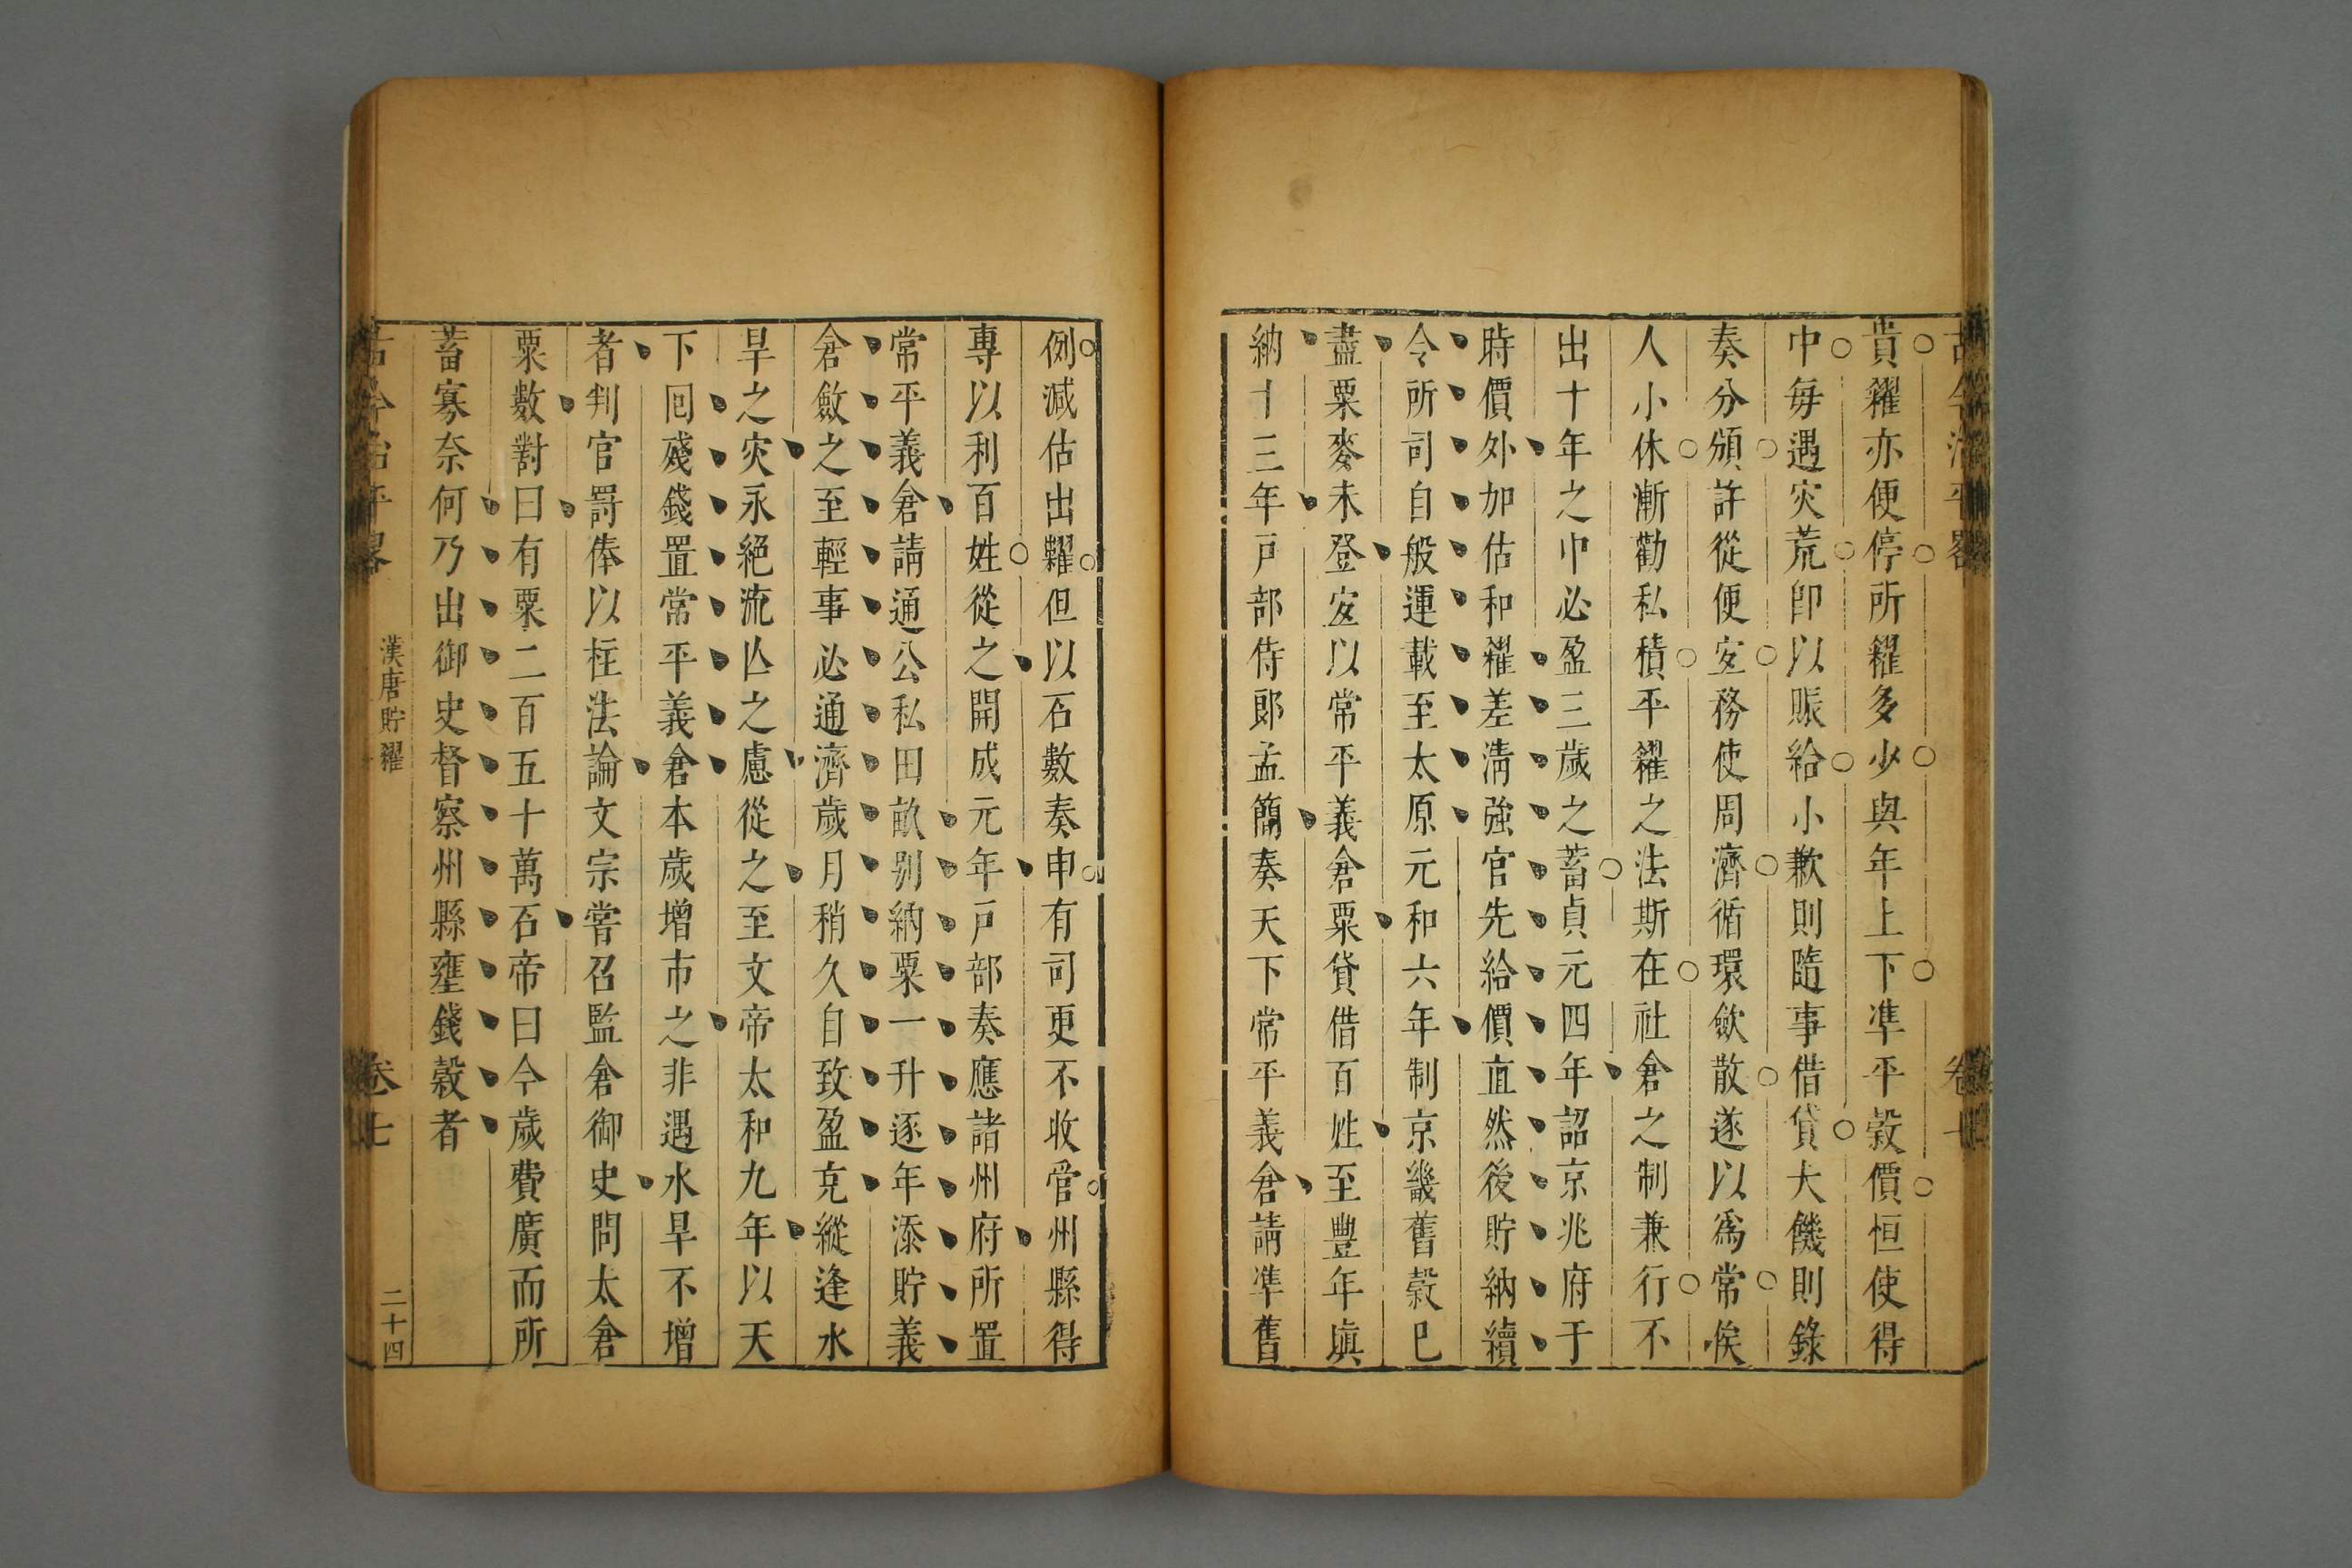 貴糴亦便停所糴多少與年上下凖平穀價恒使得
中每遇灾荒卽以賑給小歉則隨事借貸大饑則錄
奏分頒許從便宐務使周濟循環歛散遂以爲常俟
人小休漸勸私積平糴之法斯在社倉之制兼行不
出十年之中必盈三歲之蓄貞元四年詔京兆府于
時價外加估和糴差淸強官先給價直然後貯納續
令所司自般運載至太原元和六年制京畿舊穀已
盡粟麥未登宐以常平義倉粟貸借百姓至豐年塡
納十三年戸部侍郎孟簡奏天下常平義倉請凖舊
例減估出糶但以石數奏申有司更不收管州縣得
專以利百姓從之開成元年戸部奏應諸州府所置
常平義倉請通公私田畝別納粟一升逐年添貯義
倉斂之至輕事必通濟歲月稍久自致盈充縱逢水
旱之灾永絕流亾之慮從之至文帝太和九年以天
下囘殘錢置常平義倉本歲增市之非遇水旱不增
者判官罰俸以枉法論文宗嘗召監倉御史問太倉
粟數對曰有粟二百五十萬石帝曰今歲費廣而所
蓄寡奈何乃出御史督察州縣壅錢穀者
古今治平畧
漢唐貯糴
卷七
二十四